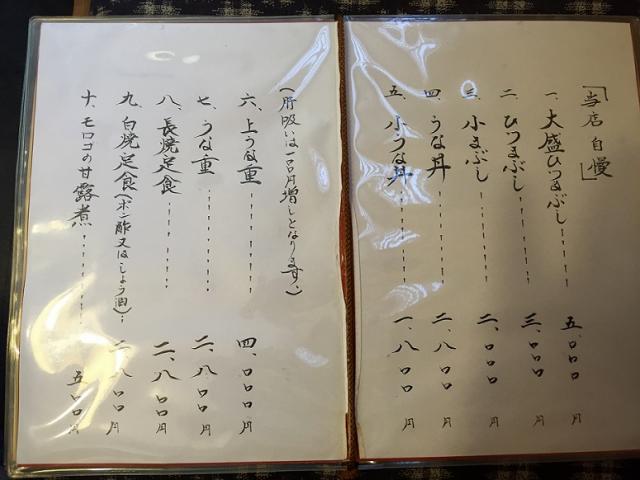 「当店自慢」
一、大盛ひつまぶし………五、〇〇〇円
二、ひつまぶし………三、〇〇〇円
三、小まぶし………二、〇〇〇円
四、うな丼………二、八〇〇円
五、小うな丼………一、八〇〇円
(肝吸いは一〇〇円増しとなります。)
六、上うな重………四、〇〇〇円
七、うな重………二、八〇〇円
八、長焼定食………二、八〇〇円
九、白焼定食(ポン酢又はしょう油)…二、八〇〇円
十、モロコの甘露煮………五〇〇円